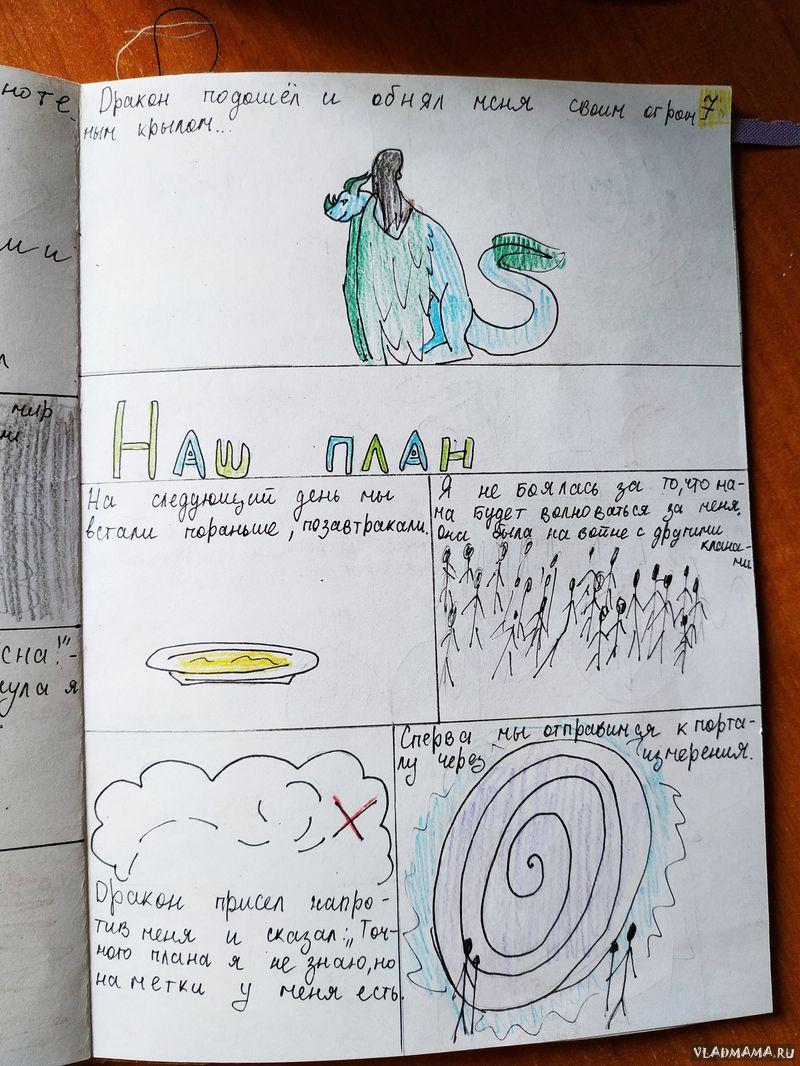 ноте
Дракон подошёл и обнял меня своим огром
7
ным крылом...
ми и
л
мир
Наш план
На следующий день мы
встали пораньше, позавтракали.
Я не боялась за то, что ма-
ма будет волноваться за меня.
Она была на войне с другими
клана-
ми
сна!"-
нула я
Дракон присел напро-
тив меня и сказал: „Точ-
ного плана я не знаю, но
наметки у меня есть.
Сперва мы отправимся к порта-
лу через измерения.
VLADMAMA.RU